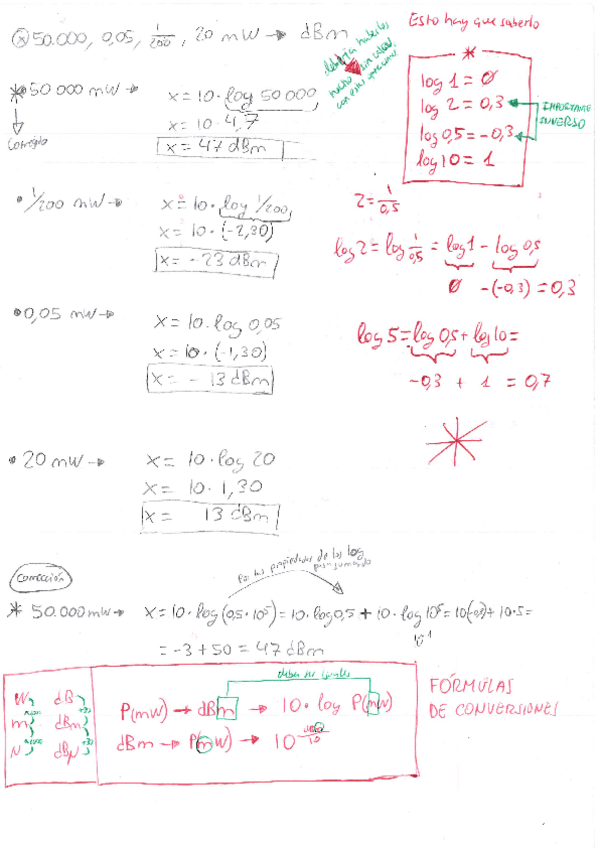 50.000, 0,05, 1/200, 20 mW → dBm
Esto hay que saberlo
debería haberlos
hecho sin calcul.
* 50 000 mW → x = 10 · log 50 000
x = 10 · 4,7
x = 47 dBm
Corregido
*
log 1 = 0
log 2 = 0,3
log 0,5 = -0,3
log 10 = 1
IMPORTANTE
INVERSO
• 1/200 mW → x = 10 · log 1/200
x = 10 · (-2,30)
x = -23 dBm
2 = 1/0,5
log 2 = log 1/0,5 = log 1 - log 0,5
0 -(-0,3) = 0,3
• 0,05 mW → x = 10 · log 0,05
x = 10 · (-1,30)
x = - 13 dBm
log 5 = log 0,5 + log 10 =
-0,3 + 1 = 0,7
• 20 mW → x = 10 · log 20
x = 10 · 1,30
x = 13 dBm
Corrección
Por las propiedades de los log
pasa sumando
* 50.000 mW → x = 10 · log (0,5 · 10⁵) = 10 · log 0,5 + 10 · log 10⁵ = 10(-0,3) + 10 · 5 =
= -3 + 50 = 47 dBm
deben ser iguales
W dB
m dBm
P(mW) → dBm → 10 · log P(mW)
dBm → P(mW) → 10
FÓRMULAS
DE CONVERSIONES